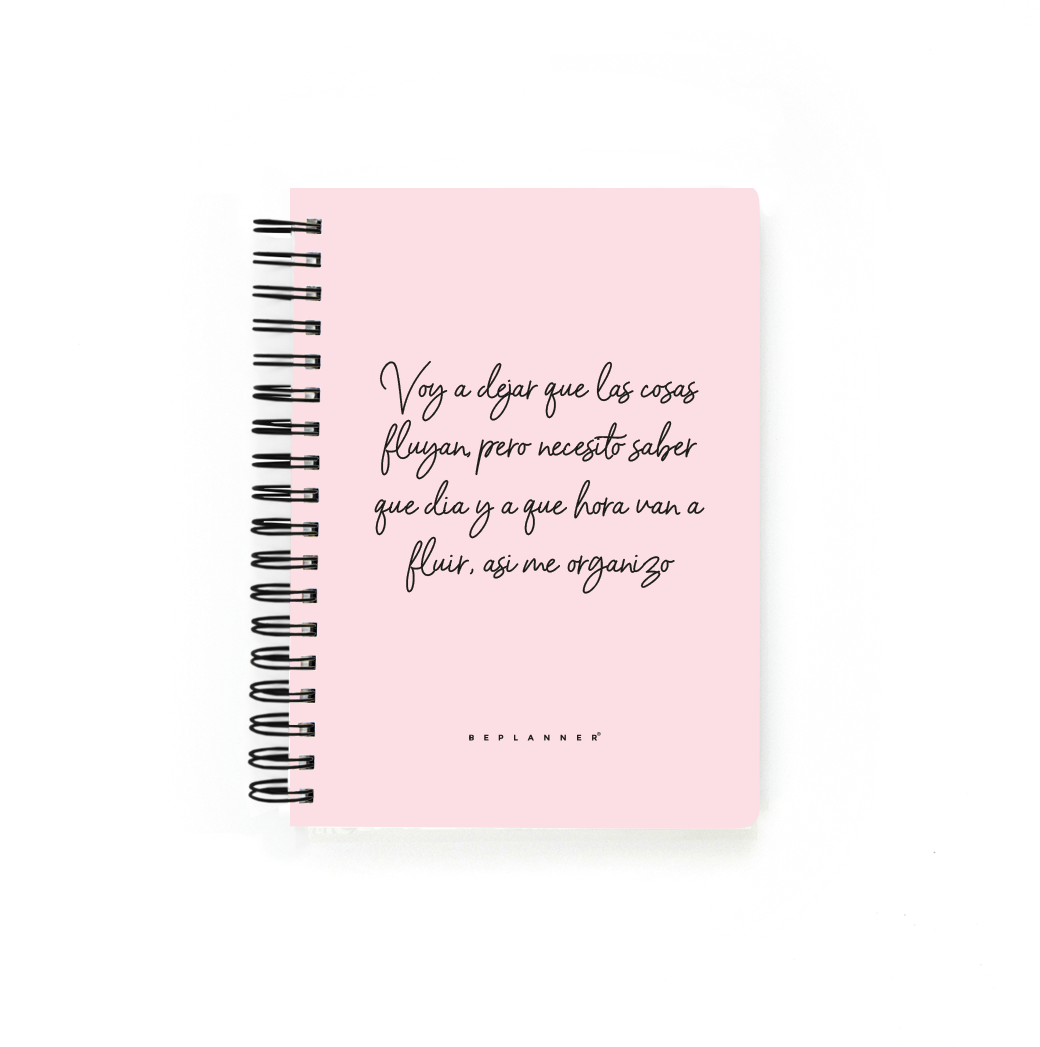 Voy a dejar que las cosas
fluyan, pero necesito saber
que dia y a que hora van a
fluir, asi me organizo
BEPLANNER®